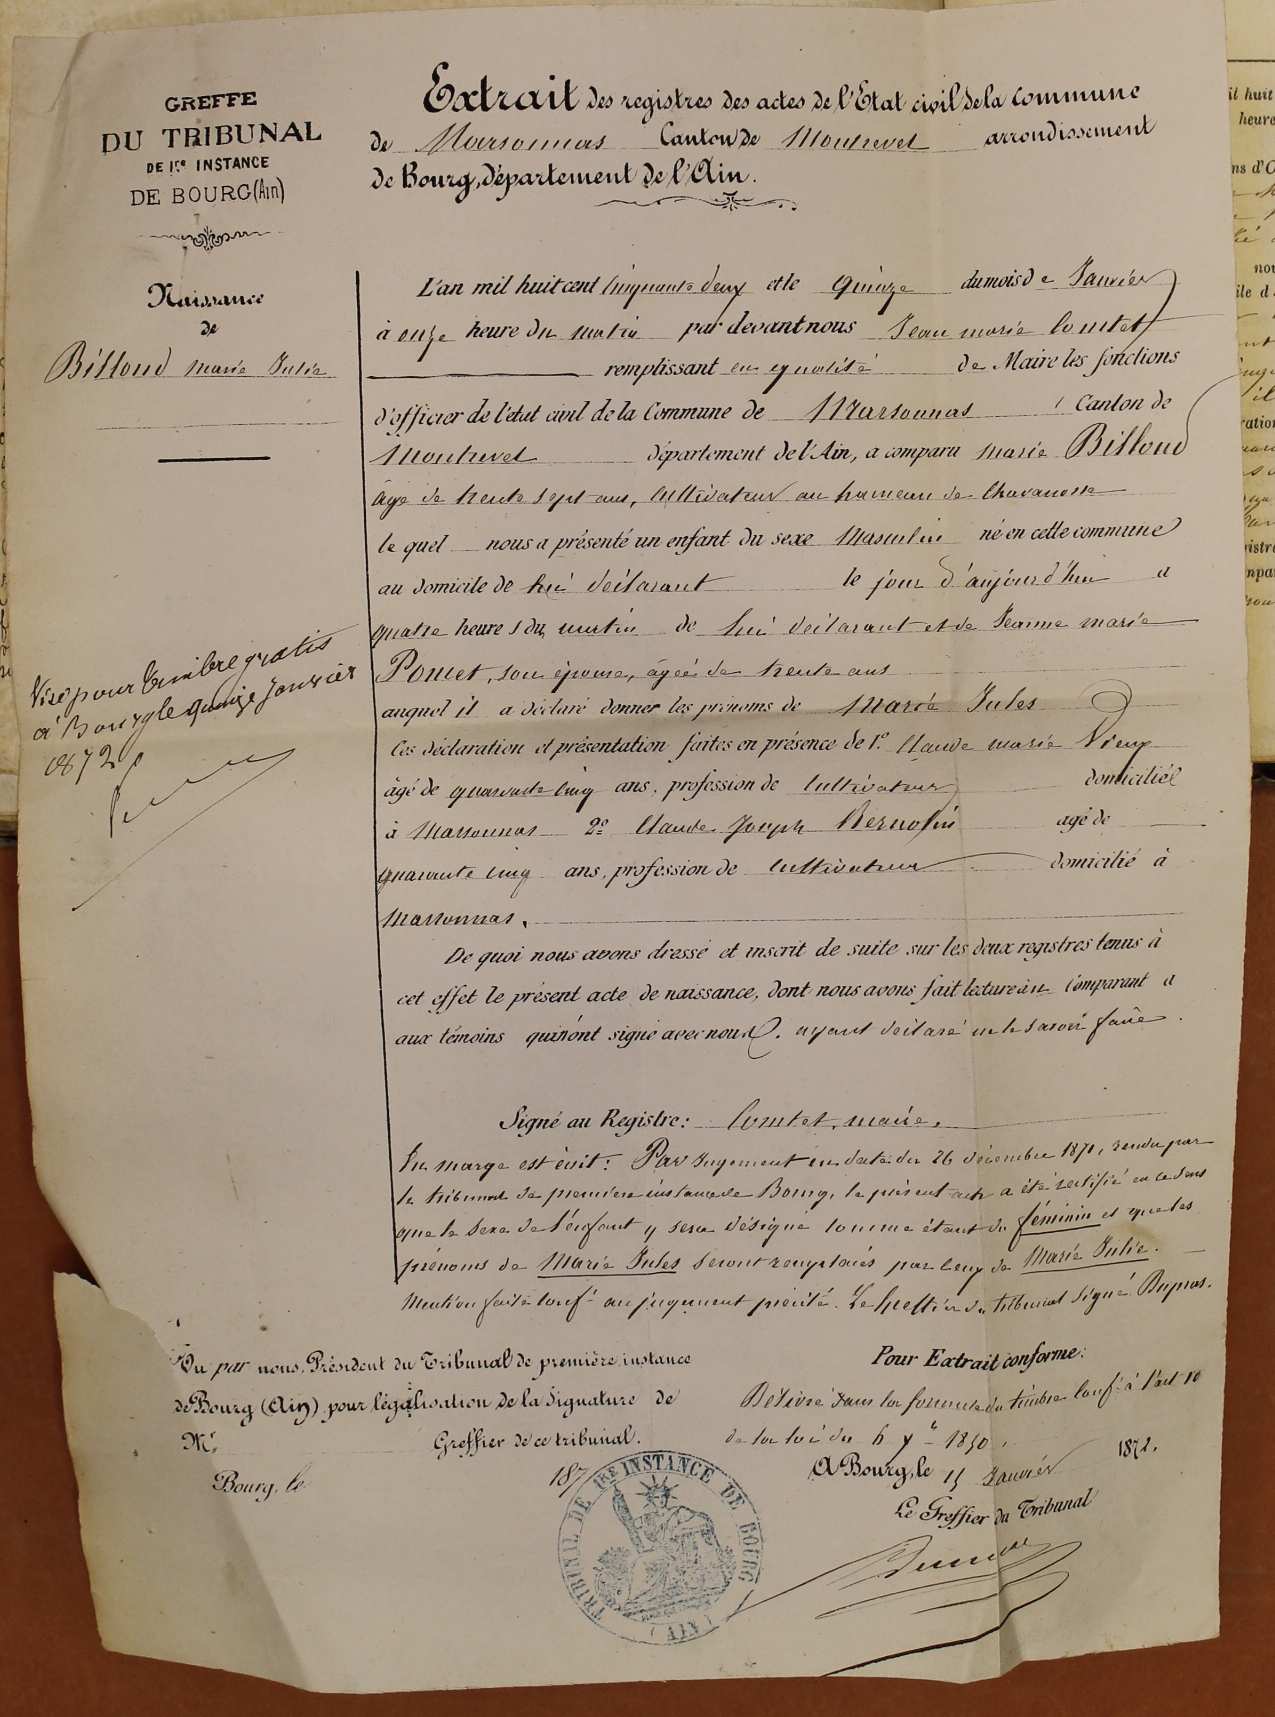 GREFFE
DU TRIBUNAL
DE 1re INSTANCE
DE BOURG (Ain)
Naissance
de
Billoud marie Julie
Visé pour timbre gratis
à Bourg le quinze Janvier
1872
Extrait des registres des actes de l'Etat civil de la Commune
de Marsonnas Canton de Montrevel arrondissement
de Bourg, département de l'Ain.
L'an mil huit cent cinquante deux et le quinze du mois de Janvier
à onze heure du matin par devant nous Jean marie Comtet
remplissant en qualité de Maire les fonctions
d'officier de l'état civil de la Commune de Marsonnas Canton de
Montrevel département de l'Ain, a comparu marie Billoud
âgé de trente sept ans, cultivateur au hameau de Chavanosse
le quel nous a présenté un enfant du sexe Masculin né en cette commune
au domicile de lui déclarant le jour d'aujourd'hui a
quatre heures du matin de lui déclarant et de Jeanne marie
Poncet, son épouse, âgée de trente ans
auquel il a déclaré donner les prénoms de Marie Jules
Ces déclaration et présentation faites en présence de 1º Claude marie Vieux
âgé de quarante cinq ans, profession de cultivateur domicilié
à Marsonnas 2º Claude Joseph Bernolin agé de
quarante cinq ans, profession de cultivateur domicilié à
Marsonnas.
De quoi nous avons dressé et inscrit de suite sur les deux registres tenus à
cet effet le présent acte de naissance, dont nous avons fait lecture au Comparant a
aux témoins qui n'ont signé avec nous. ayant déclaré ne le savoir faire.
Signé au Registre: Comtet, maire.
En marge est écrit: Par Jugement en date du 26 décembre 1871, rendu par
le tribunal de première instance de Bourg, le présent acte a été rectifié en ce sens
que le sexe de l'enfant y sera désigné comme étant du féminin et que les
prénoms de Marie Jules seront remplacés par ceux de Marie Julie.
Mention faite conft au jugement précité. Le Greffier du tribunal Signé
Vu par nous, Président du Tribunal de première instance
de Bourg (Ain) pour légalisation de la Signature de
Mr. Greffier de ce tribunal.
Bourg, le 187
Pour Extrait conforme:
Délivré dans la forme du timbre conft à l'art 10
de la loi du 1850.
A Bourg, le 15 Janvier 1872.
Le Greffier du Tribunal
TRIBUNAL DE 1re INSTANCE DE BOURG
(AIN)